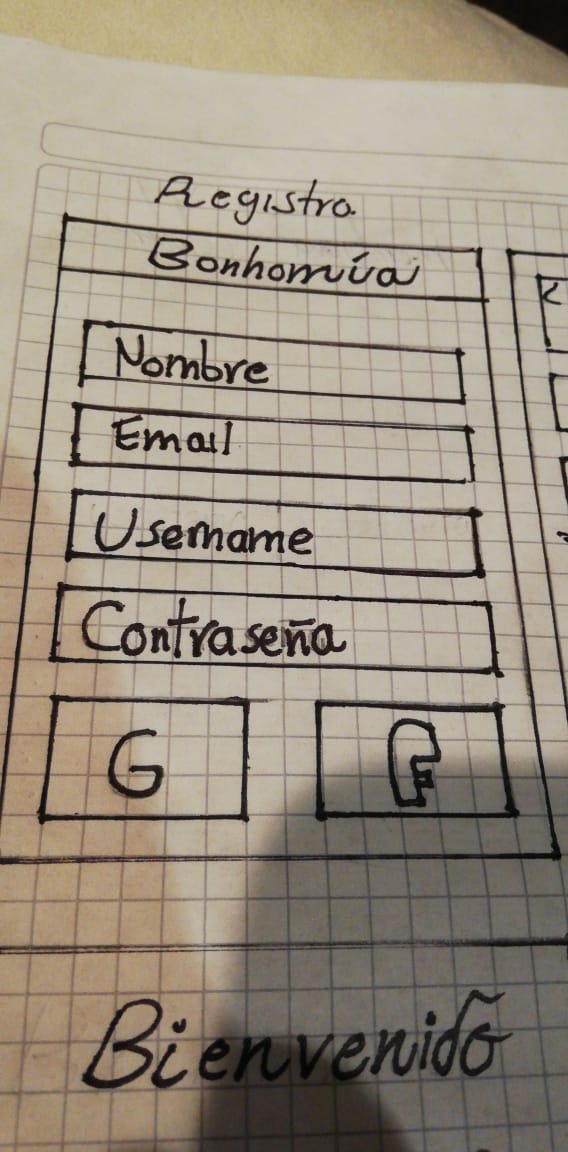 Registro.
Bonhomía
Nombre
Email
Username
Contraseña
G
F
Bienvenido